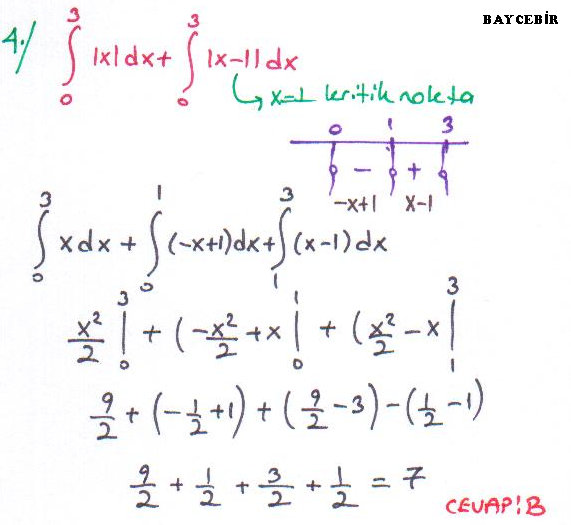 BAYCEBİR
4./ ∫₀³ |x|dx + ∫₀³ |x-1|dx
↳ x=1 kritik nokta
0 1 3
- +
-x+1 x-1
∫₀³ x dx + ∫₀¹ (-x+1)dx + ∫₁³ (x-1)dx
x²/2 |₀³ + (-x²/2 + x |₀¹ + (x²/2 - x |₁³
9/2 + (-1/2 + 1) + (9/2 - 3) - (1/2 - 1)
9/2 + 1/2 + 3/2 + 1/2 = 7
CEVAP: B